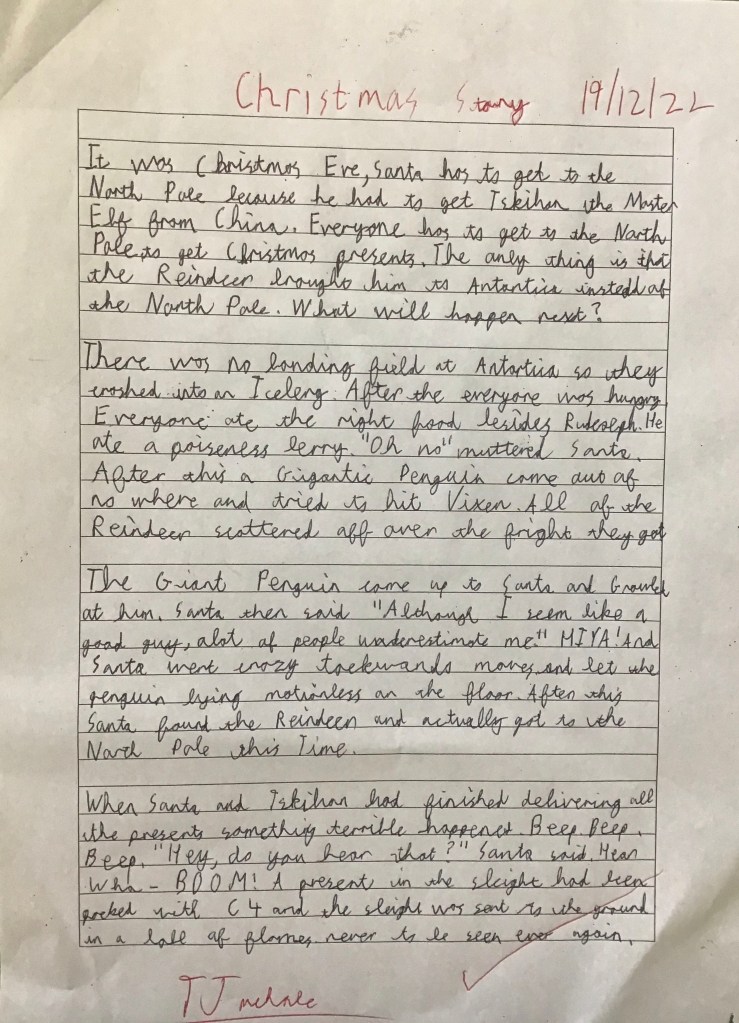 Christmas Story 19/12/22
It was Christmas Eve, Santa has to get to the
North Pole because he had to get Iskihan the Master
Elf from China. Everyone has to get to the North
Pole to get Christmas presents. The only thing is that
the Reindeer brought him to Antartica instedd of
the North Pole. What will happen next?
There was no landing field at Antartica so they
crashed into an Iceberg. After the everyone was hungry
Everyone ate the right food besides Rudeolph. He
ate a poiseness berry. "Oh no" muttered Santa.
After this a Gigantic Penguin came out of
no where and tried to hit Vixen. All of the
Reindeer scattered off over the fright they got
The Giant Penguin came up to Santa and Growled
at him. Santa then said "Although I seem like a
good guy, alot of people underestimate me!" MIYA! And
Santa went crazy taekwando moves and let the
penguin lying motionless on the floor. After this
Santa found the Reindeer and actually got to the
North Pole this Time.
When Santa and Iskihan had finished delivering all
the presents something terrible happened. Beep. Beep.
Beep. "Hey, do you hear that?" Santa said. Hear
Wha - BOOM! A present in the sleight had been
packed with C4 and the sleight was sent to the ground
in a ball of flames never to be seen ever again.
TJ